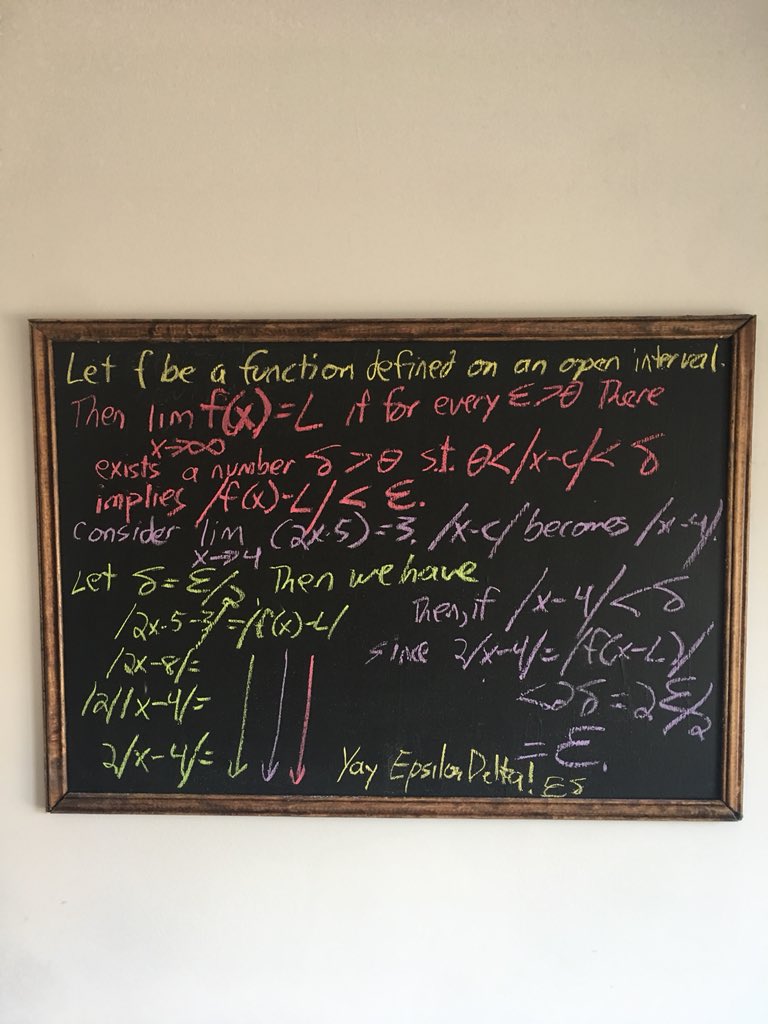 Let f be a function defined on an open interval.
Then lim f(x)=L if for every ε>0 There
x→∞
exists a number δ>0 s.t. 0<|x-c|<δ
implies |f(x)-L|<ε.
Consider lim (2x-5)=3. |x-c| becomes |x-4|.
x→4
Let δ=ε/2. Then we have
|2x-5-3|=|f(x)-L|
|2x-8|=
|2||x-4|=
2|x-4|=
Then, if |x-4|<δ
since 2|x-4|=|f(x-L)|
<2δ=2ε/2
=ε.
Yay Epsilon Delta! εδ